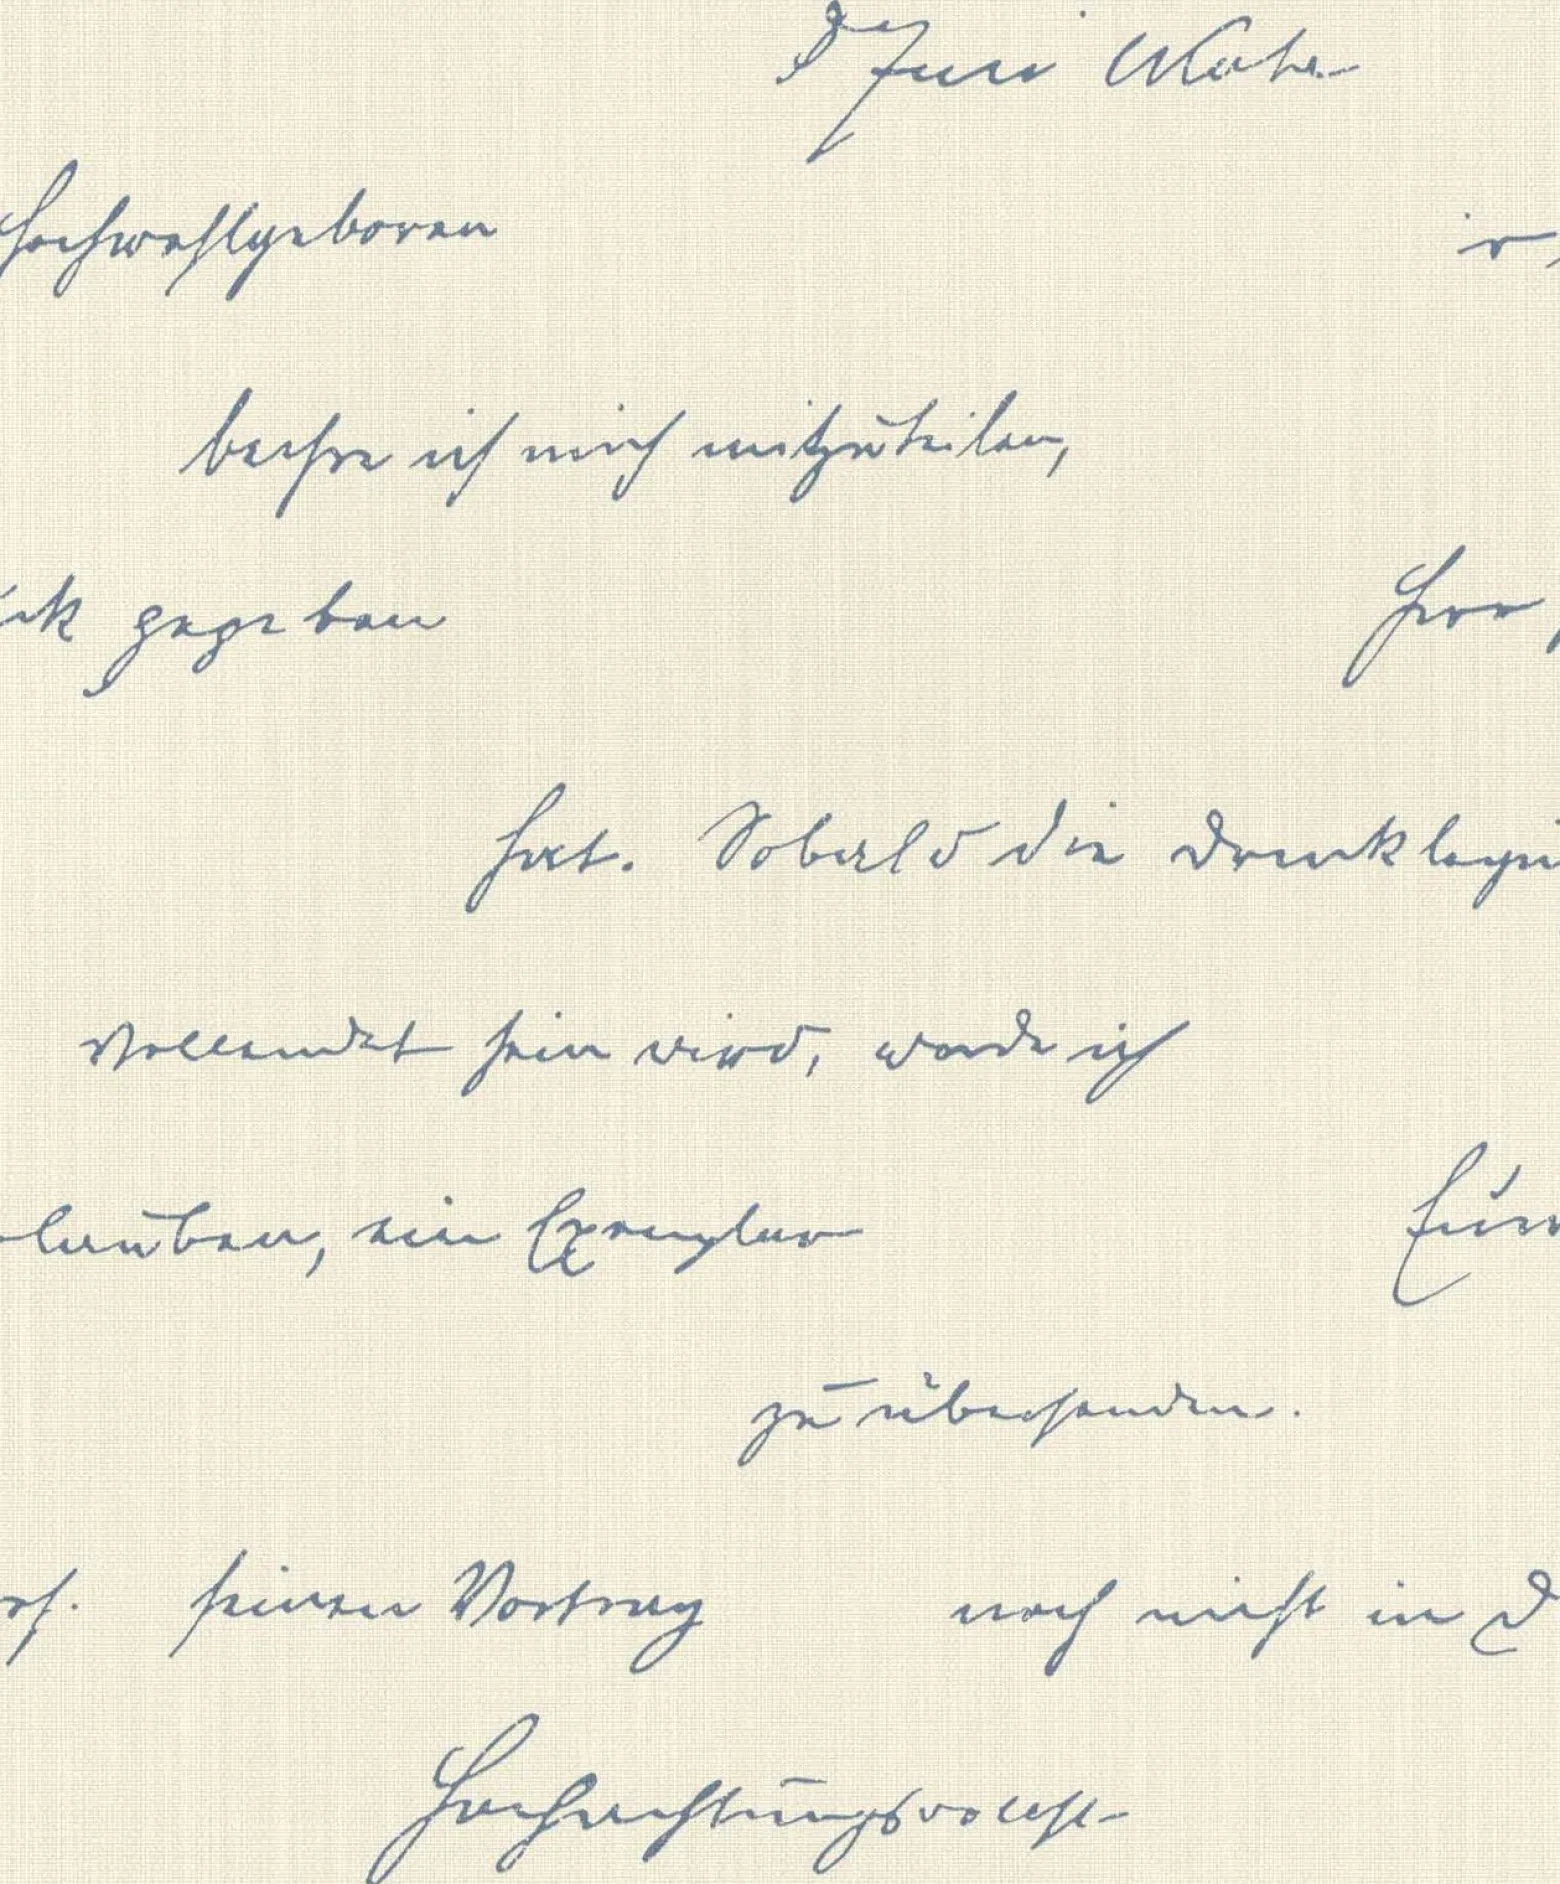 Hochwohlgeboren
beehre ich mich mitzuteilen,
gegeben Herr
hat. Sobald die Drucklegu
vollendet sein wird, werde ich
lauben, ein Exemplar Euer
zu übersenden.
seinen Vortrag noch nicht in D
Hochachtungsvollst